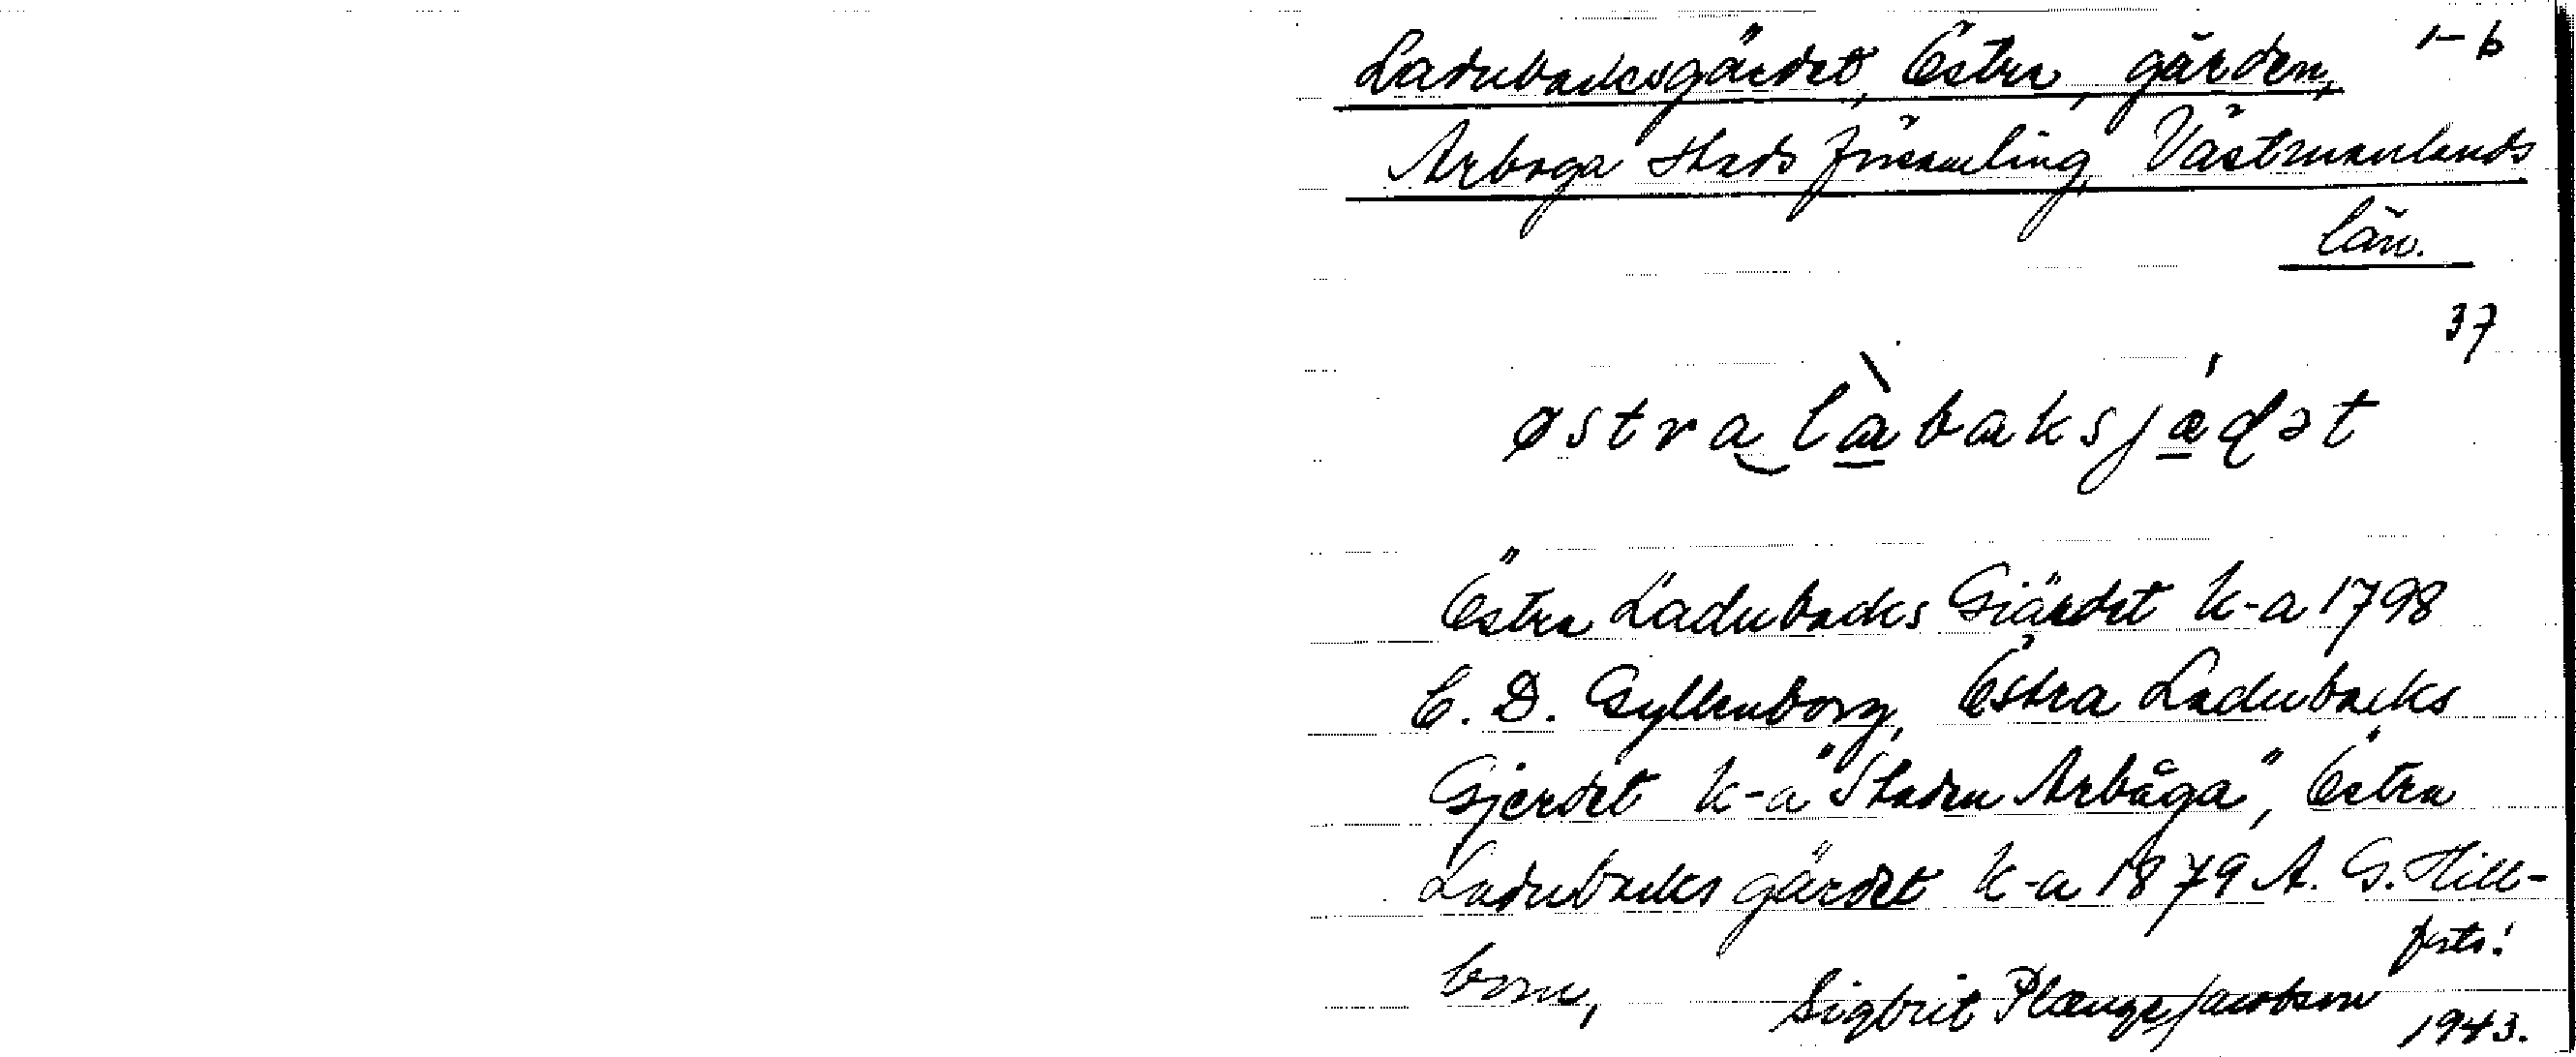 Ladubacksgärdet, Östra, gärden, 1-6
Arboga stads församling, Västmanlands
län.
37
østra làbaksjǽḍət
Östra Ladubacks Giärdet k-a 1798
C. D. Gyllenborg, Östra Ladubacks
Gjerdet k-a "Staden Arbåga", Östra
Ladubacks gärdet k-a 1879 A. G. Hill-
forts!
bom,
Sigbrit Plænge Jacobson
1943.